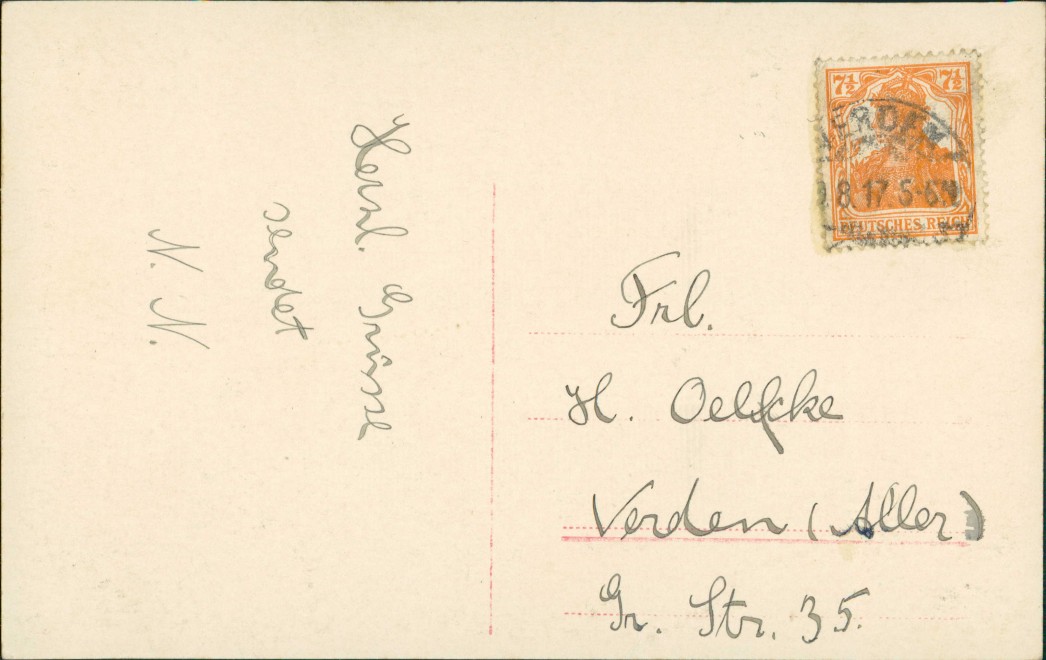 Herzl. Grüsse
sendet
N. N.
7½ 7½
VERDEN
8.17 5-6N
DEUTSCHES REICH
Frl.
H. Oelfcke
Verden (Aller)
Gr. Str. 35.